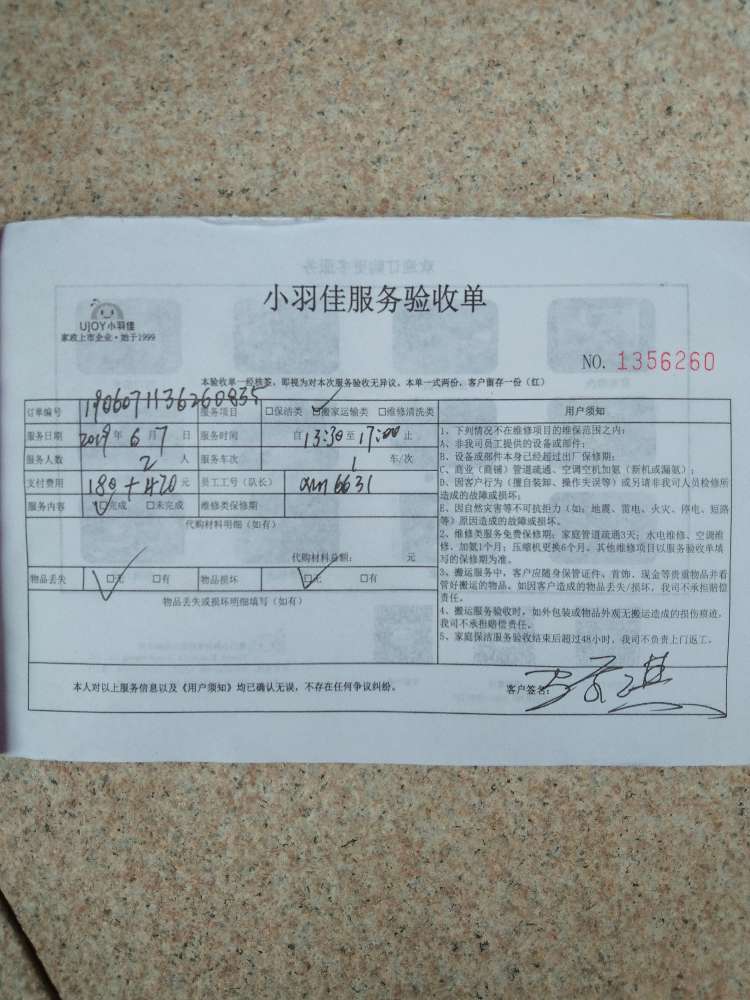 小羽佳服务验收单
UJOY小羽佳
家政上市企业·始于1999
NO. 1356260
本验收单一经核签，即视为对本次服务验收无异议。本单一式两份，客户面存一份（红）
订单编号 1906071136260835 服务项目 □保洁类 □搬家运输类 □维修清洗类
服务日期 2019 年 6 月 7 日 服务时间 自 13:30 至 17:00 止
服务人数 2 人 服务车次 1 车/次
支付费用 180+420 元 员工工号（队长） 6631
服务内容 □完成 □未完成 维修类保修期
代购材料明细（如有）
代购材料总额： 元
物品丢失 □无 □有 物品损坏 □无 □有
物品丢失或损坏明细填写（如有）
用户须知
1、下列情况不在维修项目的维保范围之内：
A、非我司员工提供的设备或部件；
B、设备或部件本身已经超过出厂保修期；
C、商业（商铺）管道疏通、空调空机加氨（新机或漏氨）；
D、因客户行为（擅自装卸、操作失误等）或另请非我司人员检修所
造成的故障或损坏；
E、因自然灾害等不可抗拒力（如：地震、雷电、火灾、停电、短路
等）原因造成的故障或损坏。
2、维修类服务免费保修期：家庭管道疏通3天；水电维修、空调维
修、加氨1个月；压缩机更换6个月。其他维修项目以服务验收单填
写的保修期为准。
3、搬运服务中，客户应随身保管证件、首饰、现金等贵重物品并看
管好搬运的物品。如因客户造成的物品丢失/损坏，我司不承担赔偿
责任。
4、搬运服务验收时，如外包装或物品外观无搬运造成的损伤痕迹，
我司不承担赔偿责任。
5、家庭保洁服务验收结束后超过48小时，我司不负责上门返工。
本人对以上服务信息以及《用户须知》均已确认无误，不存在任何争议纠纷。
客户签名：